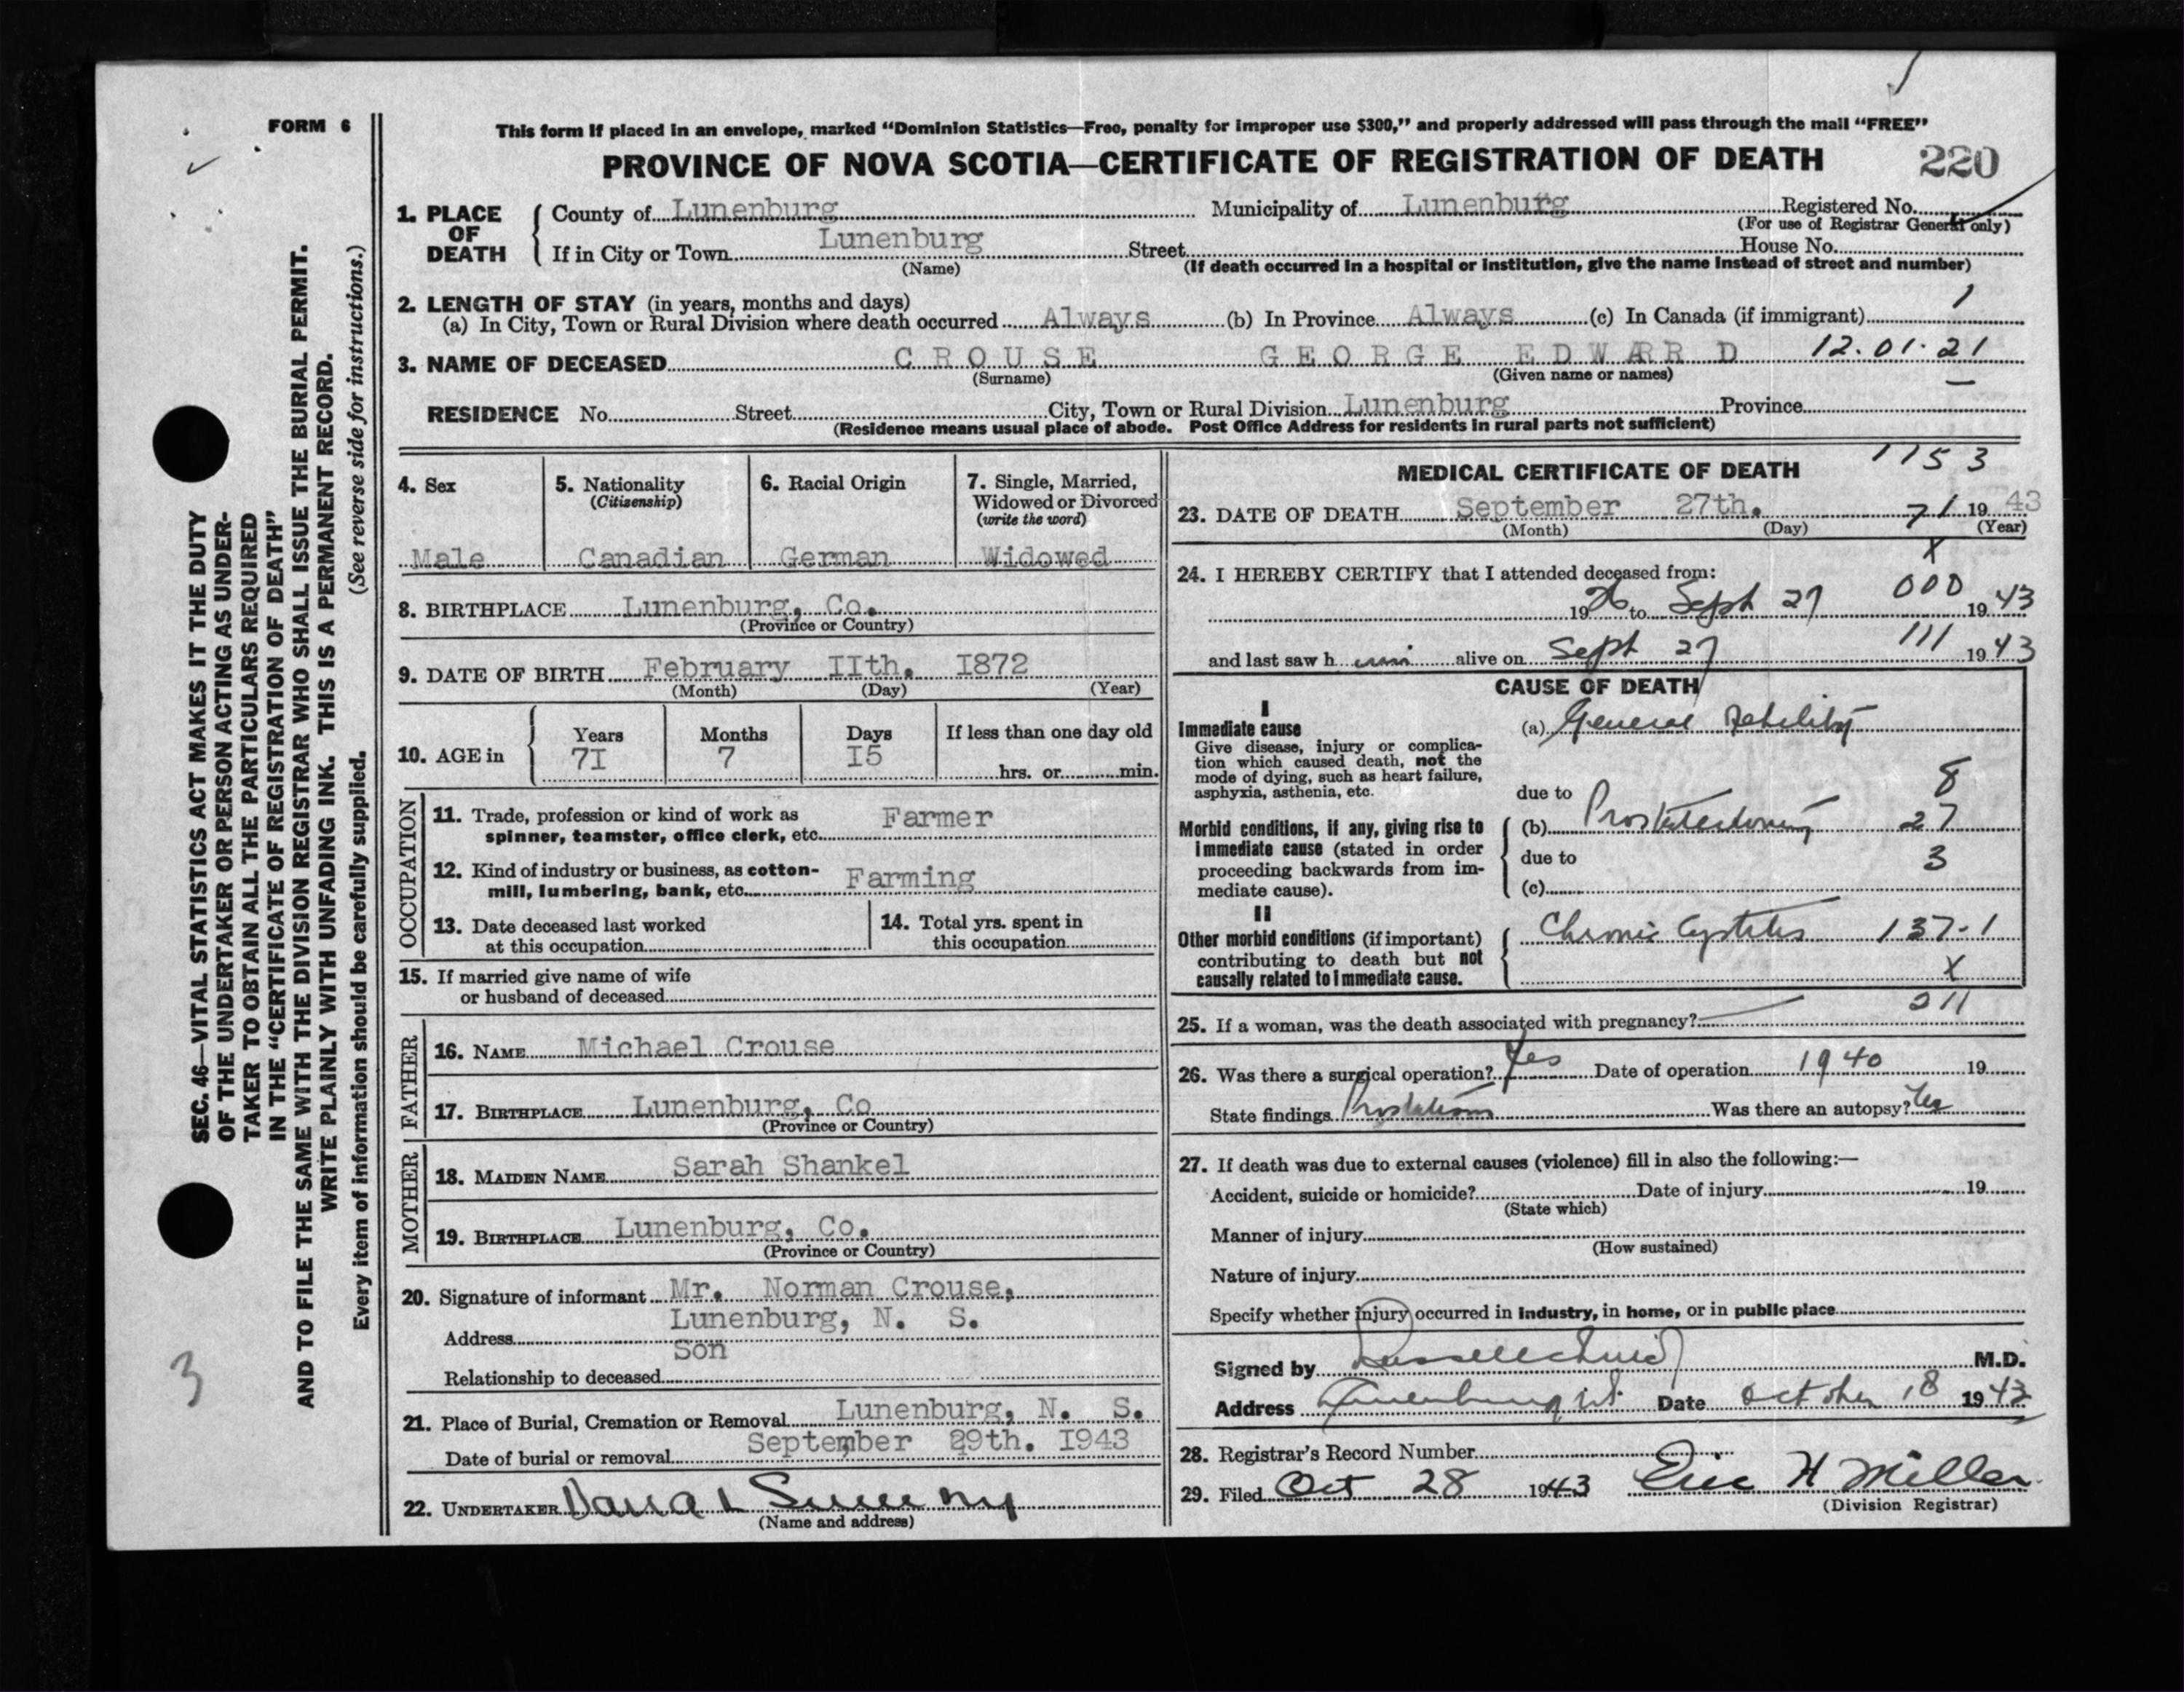 FORM 6
This form if placed in an envelope, marked “Dominion Statistics—Free, penalty for improper use $300,” and properly addressed will pass through the mail “FREE”
PROVINCE OF NOVA SCOTIA—CERTIFICATE OF REGISTRATION OF DEATH 220
1. PLACE OF DEATH
County of Lunenburg Municipality of Lunenburg Registered No.
(For use of Registrar General only)
If in City or Town Lunenburg Street House No.
(Name) (If death occurred in a hospital or institution, give the name instead of street and number)
2. LENGTH OF STAY (in years, months and days) 1
(a) In City, Town or Rural Division where death occurred Always (b) In Province Always (c) In Canada (if immigrant)
3. NAME OF DECEASED CROUSE GEORGE EDWARD 12.01.21
(Surname) (Given name or names)
RESIDENCE No. Street City, Town or Rural Division Lunenburg Province
(Residence means usual place of abode. Post Office Address for residents in rural parts not sufficient)
SEC. 46—VITAL STATISTICS ACT MAKES IT THE DUTY
OF THE UNDERTAKER OR PERSON ACTING AS UNDER-
TAKER TO OBTAIN ALL THE PARTICULARS REQUIRED
IN THE “CERTIFICATE OF REGISTRATION OF DEATH”
AND TO FILE THE SAME WITH THE DIVISION REGISTRAR WHO SHALL ISSUE THE BURIAL PERMIT.
WRITE PLAINLY WITH UNFADING INK. THIS IS A PERMANENT RECORD.
Every item of information should be carefully supplied. (See reverse side for instructions.)
3
4. Sex
Male
5. Nationality
(Citizenship)
Canadian
6. Racial Origin
German
7. Single, Married,
Widowed or Divorced
(write the word)
Widowed
8. BIRTHPLACE Lunenburg, Co.
(Province or Country)
9. DATE OF BIRTH February IIth. I872
(Month) (Day) (Year)
10. AGE in
Years Months Days If less than one day old
7I 7 I5
hrs. or min.
OCCUPATION
11. Trade, profession or kind of work as
spinner, teamster, office clerk, etc. Farmer
12. Kind of industry or business, as cotton-
mill, lumbering, bank, etc. Farming
13. Date deceased last worked
at this occupation
14. Total yrs. spent in
this occupation
15. If married give name of wife
or husband of deceased
FATHER
16. NAME Michael Crouse
17. BIRTHPLACE Lunenburg, Co
(Province or Country)
MOTHER
18. MAIDEN NAME Sarah Shankel
19. BIRTHPLACE Lunenburg, Co.
(Province or Country)
20. Signature of informant Mr. Norman Crouse,
Address Lunenburg, N. S.
Relationship to deceased Son
21. Place of Burial, Cremation or Removal Lunenburg, N. S.
Date of burial or removal September 29th. I943
22. UNDERTAKER
(Name and address)
MEDICAL CERTIFICATE OF DEATH 1153
23. DATE OF DEATH September 27th. 71 19 43
(Month) (Day) (Year)
X
24. I HEREBY CERTIFY that I attended deceased from:
19 26 to Sept 27 000 19 43
and last saw h im alive on Sept 27 111 19 43
CAUSE OF DEATH
I
Immediate cause
Give disease, injury or complica-
tion which caused death, not the
mode of dying, such as heart failure,
asphyxia, asthenia, etc.
(a) General Debility
8
due to
Morbid conditions, if any, giving rise to
immediate cause (stated in order
proceeding backwards from im-
mediate cause).
(b) Prostatectomy 27
due to 3
(c)
II
Other morbid conditions (if important)
contributing to death but not
causally related to immediate cause.
Chronic Cystitis 137-1
X
25. If a woman, was the death associated with pregnancy? 011
26. Was there a surgical operation? Yes Date of operation 1940 19
State findings Was there an autopsy? Yes
27. If death was due to external causes (violence) fill in also the following:—
Accident, suicide or homicide? Date of injury 19
(State which)
Manner of injury
(How sustained)
Nature of injury
Specify whether injury occurred in industry, in home, or in public place
Signed by M.D.
Address Lunenburg NS Date October 18 1943
28. Registrar's Record Number
29. Filed Oct 28 1943 Eric H Miller
(Division Registrar)